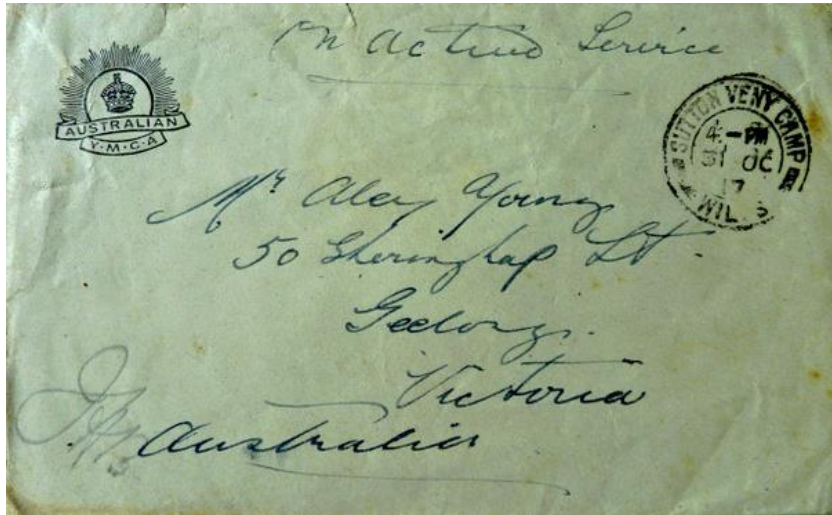 On Active Service
AUSTRALIAN
Y·M·C·A
SUTTON VENY CAMP
4 - PM
31 OC
17
WILTS
Mr Alex Young
50 Gheringhap St
Geelong
Victoria
Australia